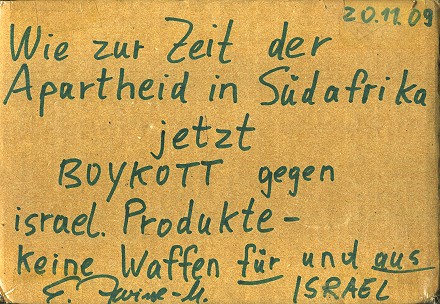 20.11.09
Wie zur Zeit der
Apartheid in Südafrika
jetzt
BOYKOTT gegen
israel. Produkte-
keine Waffen für und aus
ISRAEL